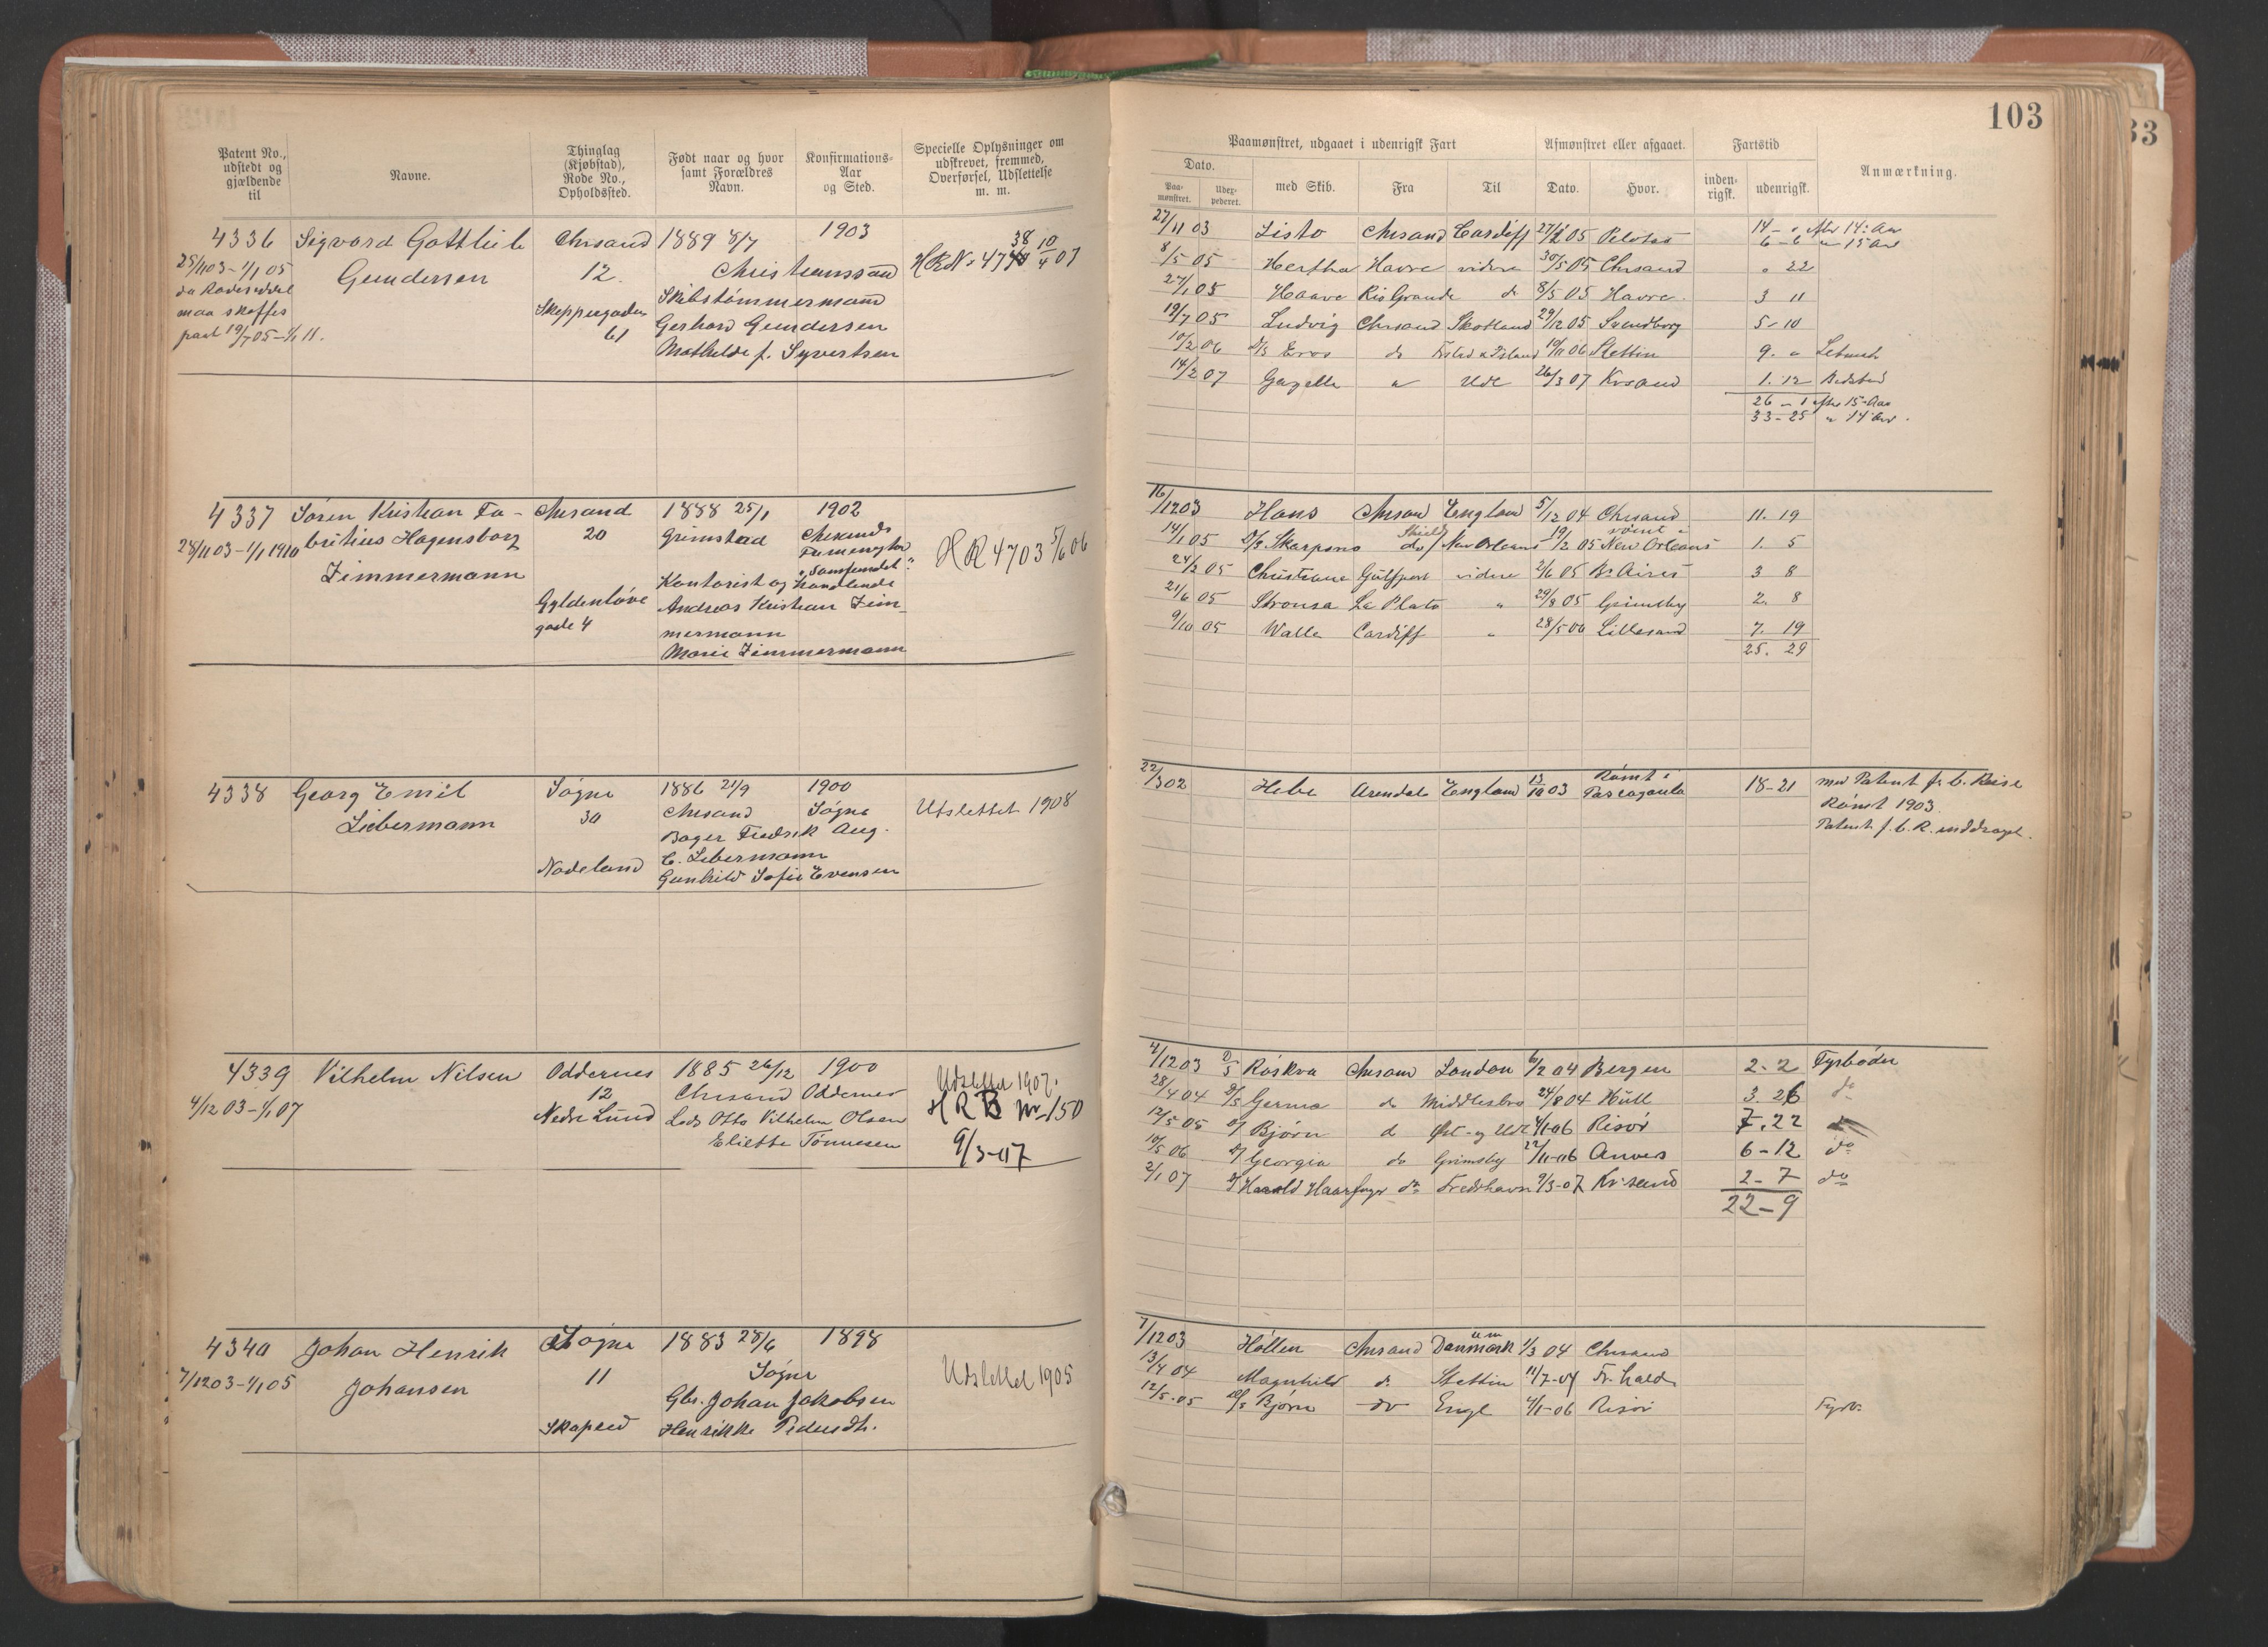 Patent No., udstedt og gjældende til
Navne.
Thinglag (Kjøbstad), Rode No., Opholdssted.
Født naar og hvor samt Forældres Navn.
Konfirmations-Aar og Sted.
Specielle Oplysninger om udskrevet, fremmed, Overførsel, Udslettelse m. m.
4336 Sigvard Gottlieb Chrsand 1889 8/7 1903
25/11 03 - 1/1 05 Gundersen 12. Christianssand
maa skaffes Skippergaden Skibstømmermand
pat 19/7 05 - 1/1 11. 61 Gerhard Gundersen
Mathilde f. Syvertsen
4337 Søren Kristian Fa- Chrsand 1888 25/1 1902
28/11 03 - 1/1 1910 britius Hagensborg 20 Grimstad Chrsands
Zimmermann "Samfundet"
HR 4703 5/6 06
Kontorist og Handlende
Gyldenløve Andreas Kristian Zim-
gade 4 mermann
Marie Zimmermann
4338 Georg Emil Søgne 1886 21/9 1900 Udslettet 1908
Liebermann 30 Chrsand Søgne
Bager Fredrik Aug.
Nodeland C. Libermann
Gunhild Sofie Evensen
4339 Vilhelm Nilsen Oddernes 1885 26/12 1900 Udslettet 1907.
4/12 03 - 1/1 07 12 Chrsand Oddernes HRB Nr 150
Nedre Lund Lods Otto Vilhelm Olsen
Eliette Tønnesen 9/3-07
4340 Johan Henrik Søgne 1883 28/6 1898
7/12 03 - 1/1 05 Johansen 11 Søgne Udslettet 1905
Gbr. Johan Jakobsen
Henrikke Pedersdt.
103
Paamønstret, udgaaet i udenrigsk Fart
Afmønstret eller afgaaet.
Fartstid
Anmærkning.
Dato.
Paa-mønstret.
med Skib.
Fra
Til
Dato.
Hvor.
inden-rigsk.
udenrigsk.
27/11 03 Lista Chrsand Cardiff
8/5 05 Hertha Havre videre 30/5 05 Chrsand " 22
27/1 05 Haave Rio Grande do 8/5 05 Havre. 3 11
19/7 05 Ludvig Chrsand Skotland 29/12 05 Svendborg 5-10
10/2 06 D/S Eros do 19/11 06 Stettin 9. " Letmat
14/2 07 Gazelle " Udl 26/3 07 Krsand 1. 12
26 - 1 efter 15 Aar
33-25 " 14 Aar.
16/12 03 Hans Chrsan England 5/12 04 Chrsand 11. 19
14/1 05 D/S Skarpsno do / New Orleans 19/2 05 rømt i New Orleans 1. 5
24/2 05 Christiane Gulfport videre 2/6 05 Bs Aires 3 8
21/6 05 Stronsa La Plata " 29/8 05 Grimsby 2. 8
9/10 05 Walle Cardiff " Lillesand 7. 19
25. 29
22/3 02 Hebe Arendal England 13/10 03 Rømt i Pascagoula 18-21 med Patent fr b. Reise
Rømt 1903.
Patent f. b. R. inddraget.
4/12 03 D/S Røskva Chrsand London 6/2 04 Bergen 2-2 Fyrbøder
28/4 04 D/S Germa do Middlesbro 24/8 04 Hull 3. 26 do
12/5 05 Bjørn d Øst- og Udl 4/1-06 Risør 7.22
10/5 06 Georgia do Grimsby 22/11-06 Anvers 6-12 do
2/1 07 Harald Haarfagr do Fredshavn 9/3-07 Kr.sand 2-7 do
22-9
7/12 03 Høllen Chrsand Danmark 1/3 04 Chrsand
13/4 04 Magnhild d. Stettin 11/7-04 Fr.hald
12/5-05 D/S Bjørn do Engl 4/1-06 Risør Fyrb.